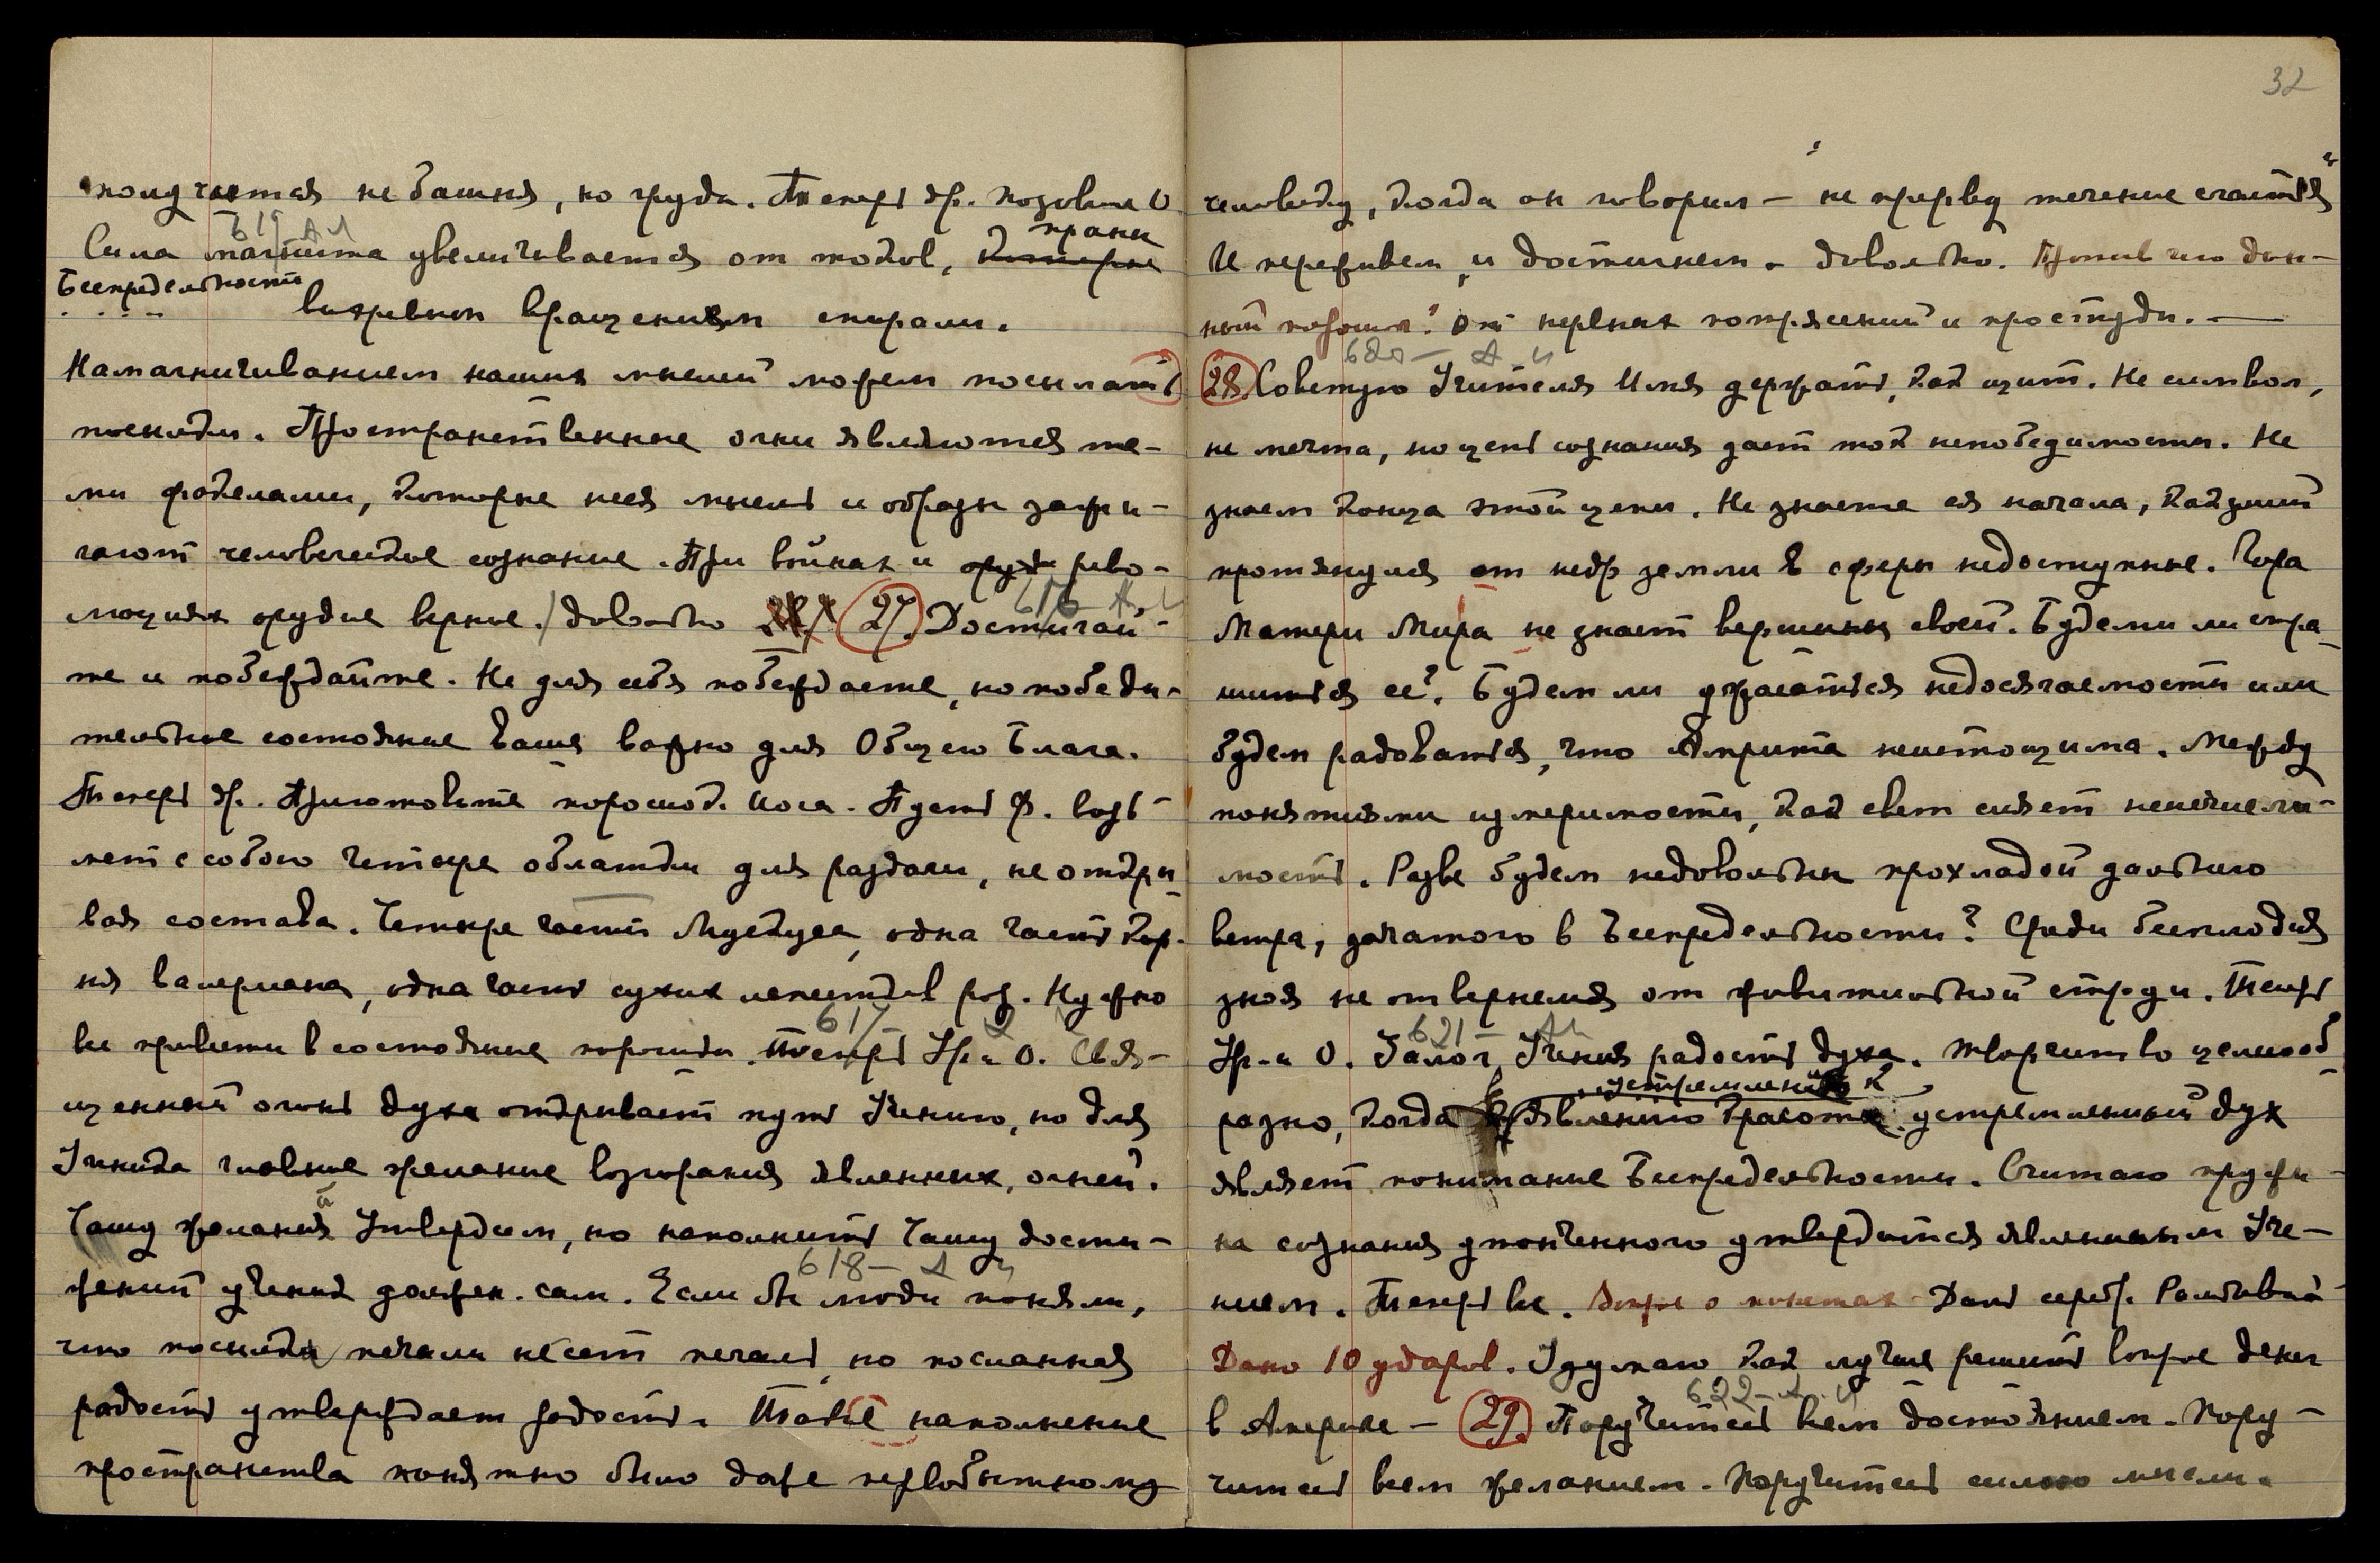 получается не башня, но груда. Теперь Ур. позовите О.
619 - А Й
Сила магнита увеличивается от токов, которые
праны
Беспредельности
вихревым вращением спирали.
Намагничиванием наших мыслей можем посылать
посылки. Пространственные огни являются те-
ми факелами, которые неся мысль и образы зажи-
гают человеческое сознание. При войнах и оруди рево-
люциях орудие верное. / довольно 27. Достигай-
616 - А. Й
те и побеждайте. Не для себя побеждаете, но победи-
тельное состояние Ваше важно для Общего Блага.
Теперь Ур. Приготовьте порошок. Иога. Пусть Ф. возь-
мет с собою четыре облатки для раздачи, не откры-
вая состава. Четыре части Мускуса, одна часть кор-
ня валериана, одна часть сухих лепестков роз. Нужно
все привести в состояние порошка. Теперь Ур. и О. Свя-
617
щенный огонь духа открывает путь Учению, но для
Ученика главное желание возгорания явленных огней.
Чашу желаний Утвердим, но наполнить Чашу дости-
жений ученик должен сам. Если бы люди поняли,
618 - А Й
что посылка печали несет печаль, но посланная
радость утверждает радость. Такое наполнение
пространства понятно было даже первобытному
32
человеку, когда он говорил — не прерву течение счастья
И переживем, и достигнем. Довольно. Против чего дан-
ный порошок? От нервных потрясений и простуды. —
620 - А Й
28. Советую Учителя Имя держать, как щит. Не символ,
не мечта, но цепь сознания дает ток непобедимости. Не
знаем конца этой цепи. Не знаете ея начала, как змий
протянулся от недр земли в сферы недоступные. Гора
Матери Мира не знает вершины своей. Будем ли стра-
шиться ее? Будем ли ужасаться недосягаемости или
будем радоваться, что Амрита неистощима. Между
понятиями измеримости, как свет сияет неисчисли-
мость. Разве будем недовольны прохладой дальнего
ветра, зачатого в Беспредельности? Среди бесплодия
зноя не отвернемся от живительной струи. Теперь
621 - А Й
Ур. и О. Залог Учения радость духа. Творчество целесооб-
устремлением к
разно, когда к явлению красоты устремленный дух
являет понимание Беспредельности. Считаю пружи-
на сознания утонченного утвердится явленным Уче-
нием. Теперь все. Вопрос о монетах. Дать серебр.
Дано 10 ударов. Я думаю как лучше решить вопрос денег
622 - А. Й
в Америке — 29. Поручитесь всем достоянием. Пору-
читесь всем желанием. Поручитесь силою мысли.